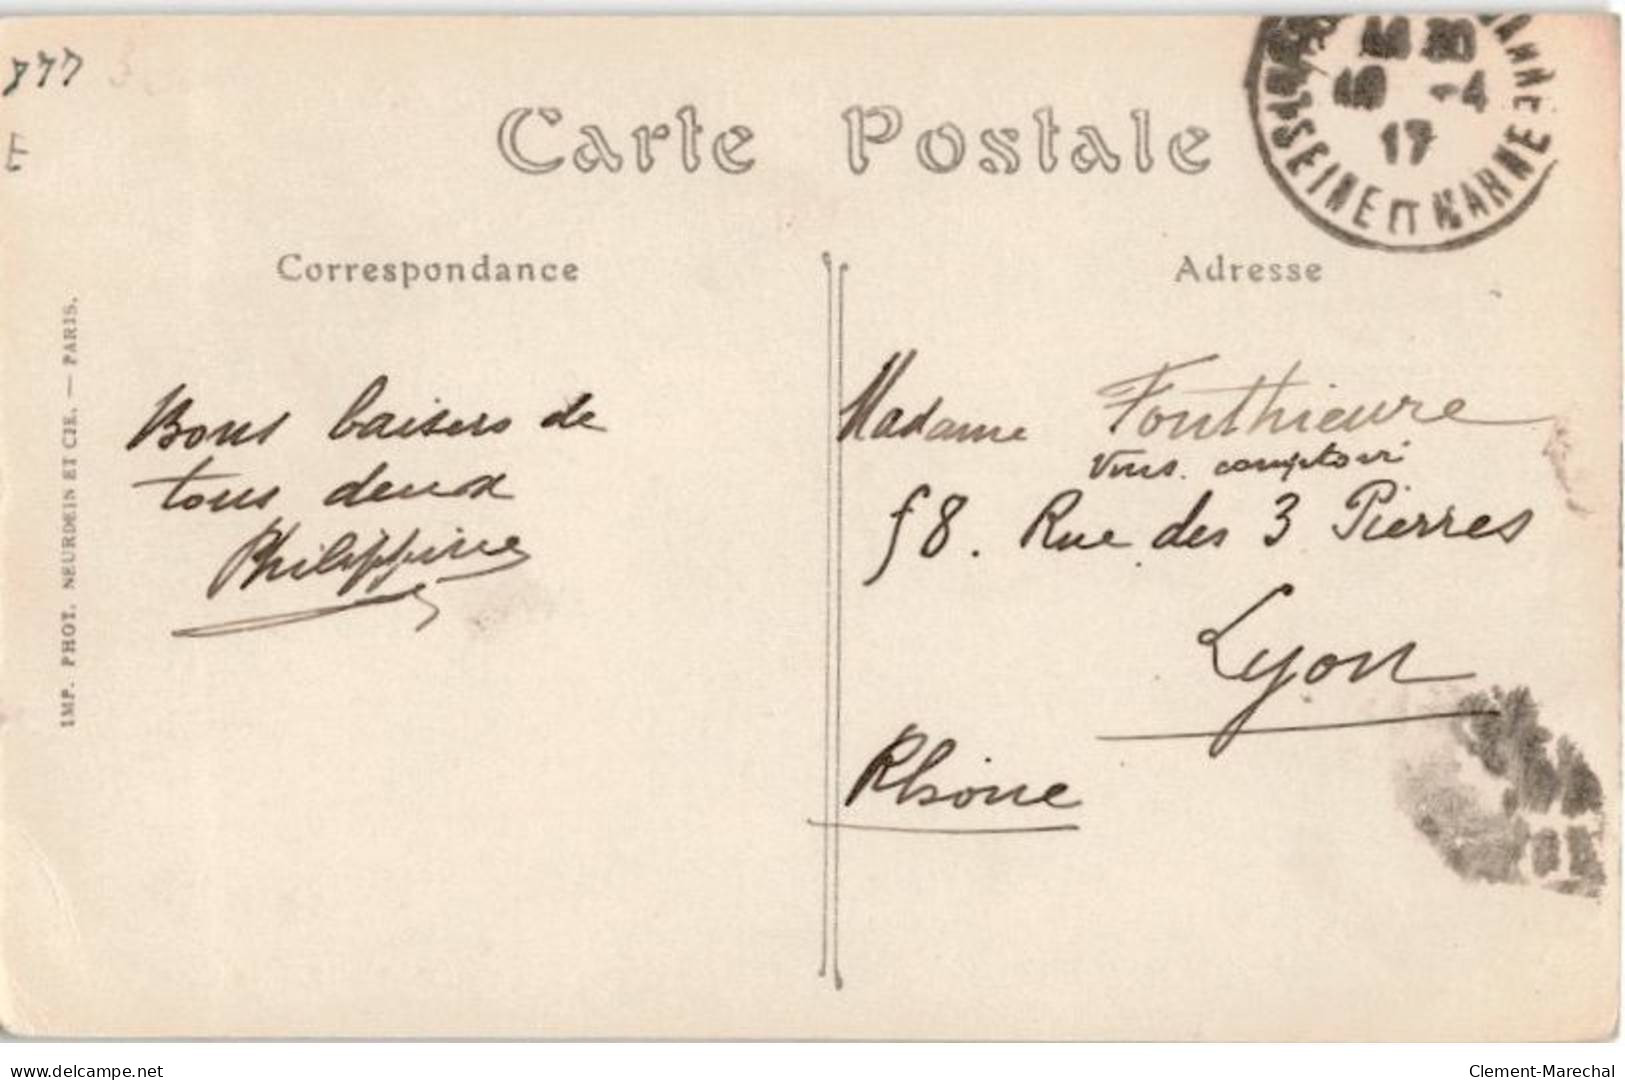 877
E
Carte Postale
17
SEINE ET MARNE
Correspondance
Adresse
IMP. PHOT. NEURDEIN ET CIE. — PARIS.
Bons baisers de
tous deux
Philippine
Madame Fonthieure
Vins. comptoir
58. Rue des 3 Pierres
Lyon
Rhône
delcampe.net
Clement-Marechal